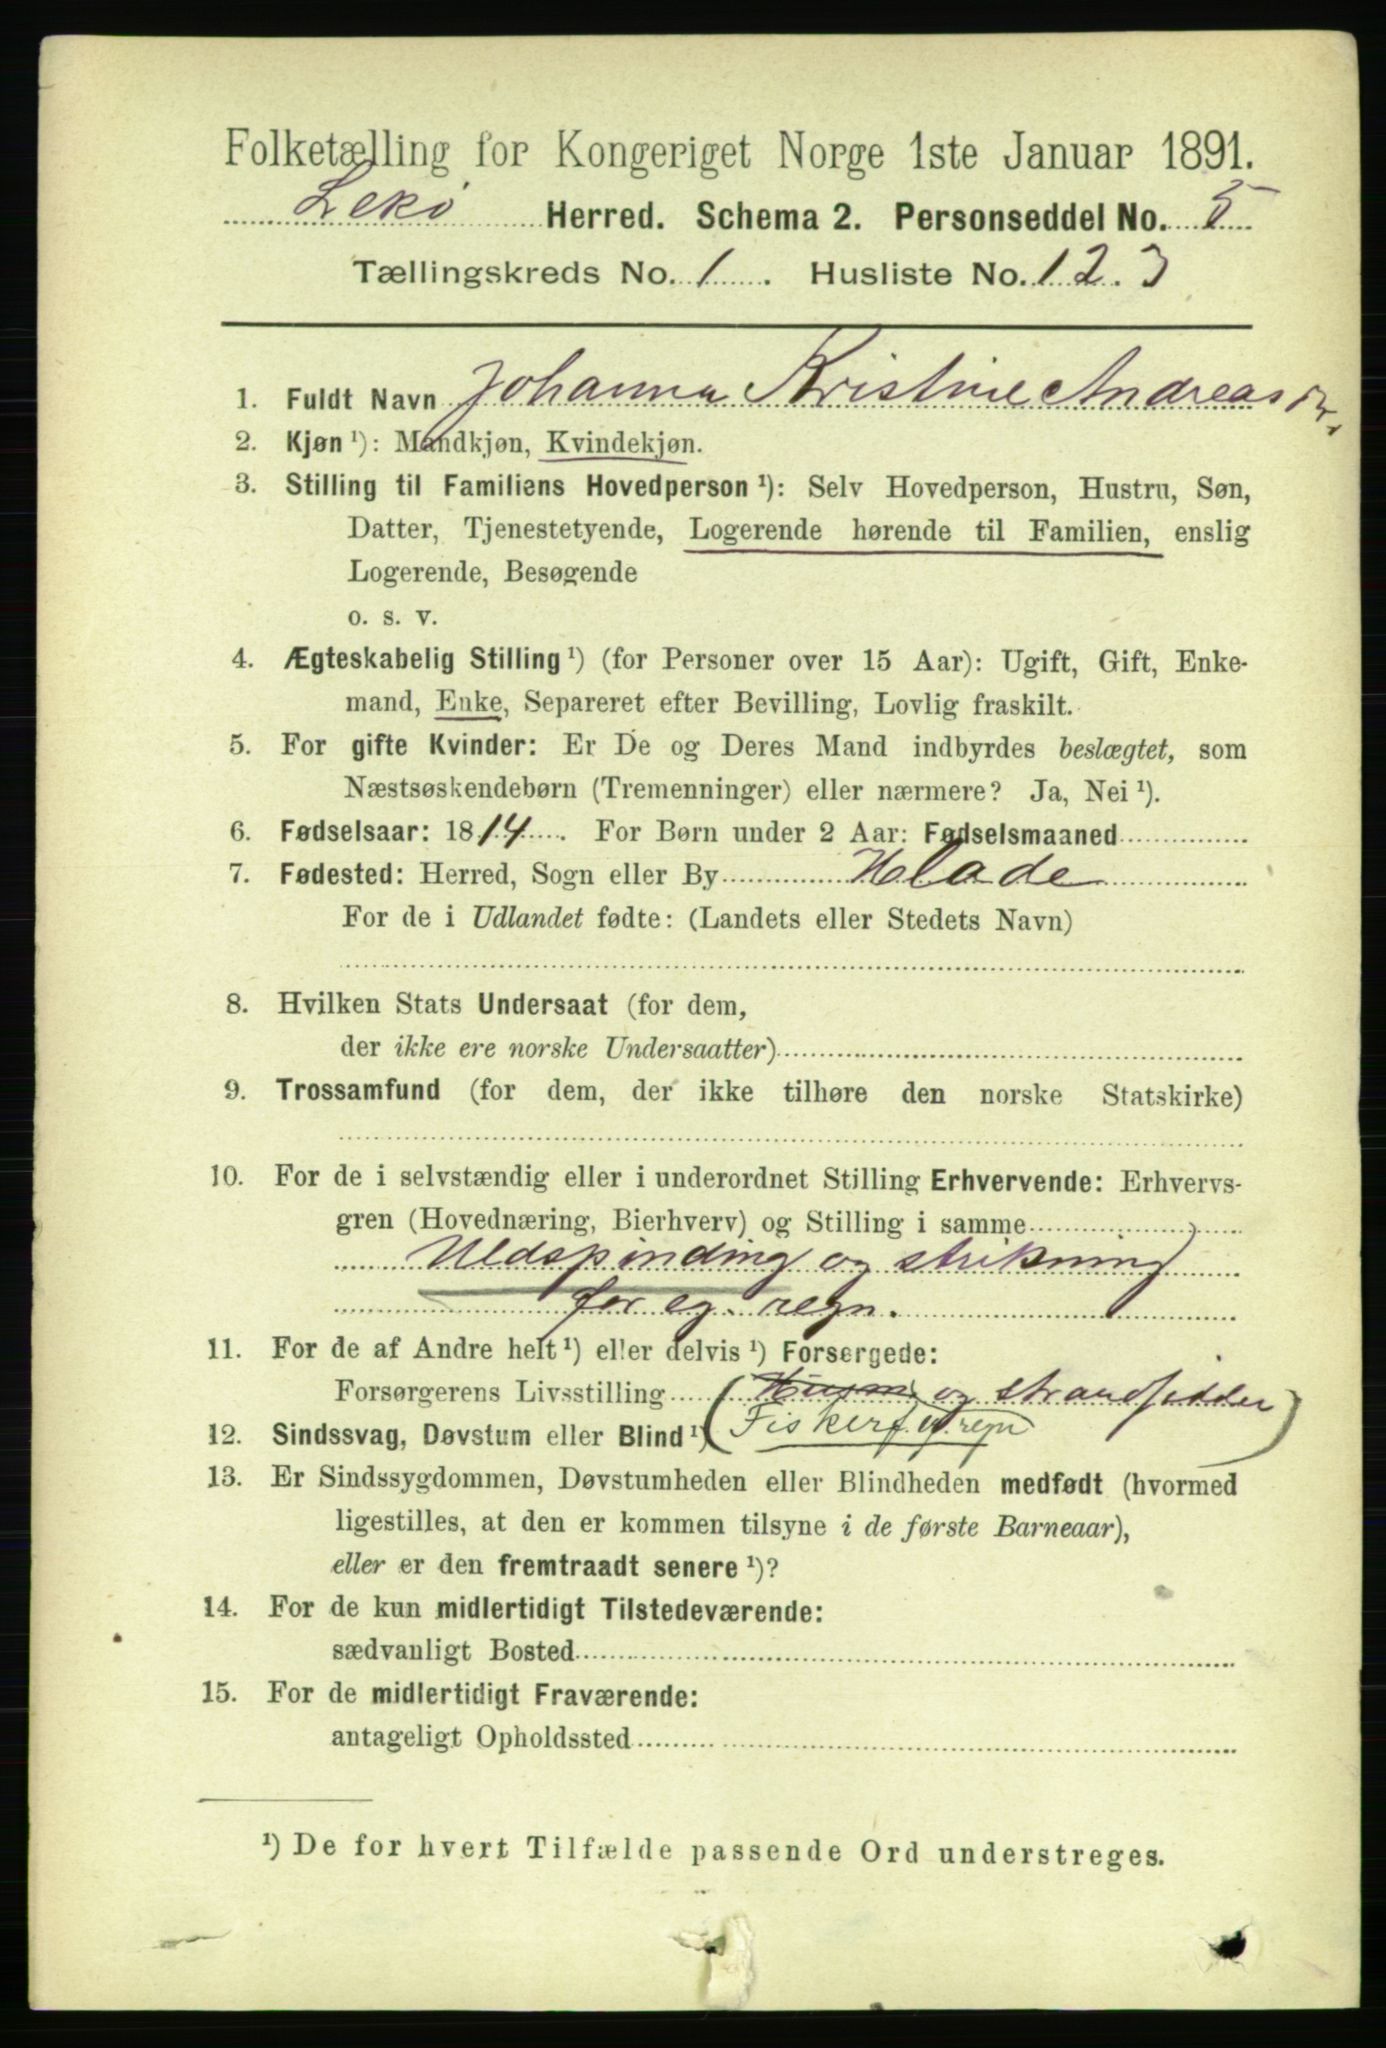 Folketælling for Kongeriget Norge 1ste Januar 1891.
Lekø Herred. Schema 2. Personseddel No. 5
Tællingskreds No. 1. Husliste No. 123
1. Fuldt Navn Johanna Kristine Andreasdr.
2. Kjøn ¹): Mandkjøn, Kvindekjøn.
3. Stilling til Familiens Hovedperson ¹): Selv Hovedperson, Hustru, Søn,
Datter, Tjenestetyende, Logerende hørende til Familien, enslig
Logerende, Besøgende
o. s. v.
4. Ægteskabelig Stilling ¹) (for Personer over 15 Aar): Ugift, Gift, Enke-
mand, Enke, Separeret efter Bevilling, Lovlig fraskilt.
5. For gifte Kvinder: Er De og Deres Mand indbyrdes beslægtet, som
Næstsøskendebørn (Tremenninger) eller nærmere? Ja, Nei ¹).
6. Fødselsaar: 1814. For Børn under 2 Aar: Fødselsmaaned
7. Fødested: Herred, Sogn eller By Hlade
For de i Udlandet fødte: (Landets eller Stedets Navn)
8. Hvilken Stats Undersaat (for dem,
der ikke ere norske Undersaatter)
9. Trossamfund (for dem, der ikke tilhøre den norske Statskirke)
10. For de i selvstændig eller i underordnet Stilling Erhvervende: Erhvervs-
gren (Hovednæring, Bierhverv) og Stilling i samme
Uldspinding og strikning
for eg. regn.
11. For de af Andre helt ¹) eller delvis ¹) Forsørgede:
Forsørgerens Livsstilling (Husm og strandsidder
12. Sindssvag, Døvstum eller Blind ¹) Fisker f. eg. regn)
13. Er Sindssygdommen, Døvstumheden eller Blindheden medfødt (hvormed
ligestilles, at den er kommen tilsyne i de første Barneaar),
eller er den fremtraadt senere ¹)?
14. For de kun midlertidigt Tilstedeværende:
sædvanligt Bosted
15. For de midlertidigt Fraværende:
antageligt Opholdssted
¹) De for hvert Tilfælde passende Ord understreges.